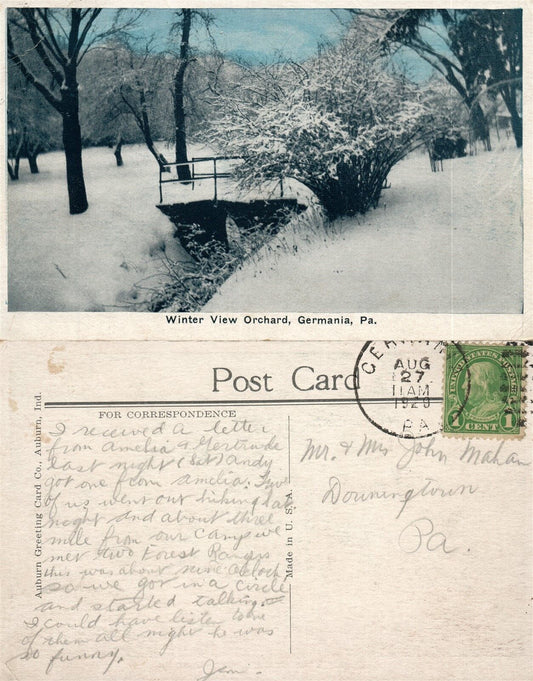 Winter View Orchard, Germania, Pa.
Post Card
FOR CORRESPONDENCE
Auburn Greeting Card Co., Auburn, Ind.
Made in U. S. A.
GERMANIA
AUG
27
11AM
PA
UNITED STATES POSTAGE
1 CENT 1
I received a letter
from Amelia & Gertrude
last night (Sat) Andy
got one from Amelia.
of us went out hiking last
night and about three
mile from our camp we
met two Forest Rangers
this was about nine O clock
so we got in a circle
and started talking
I could have listen to one
of them all night he was
so funny.
Jim.
Mr. & Mrs John Mahan
Downingtown
Pa.